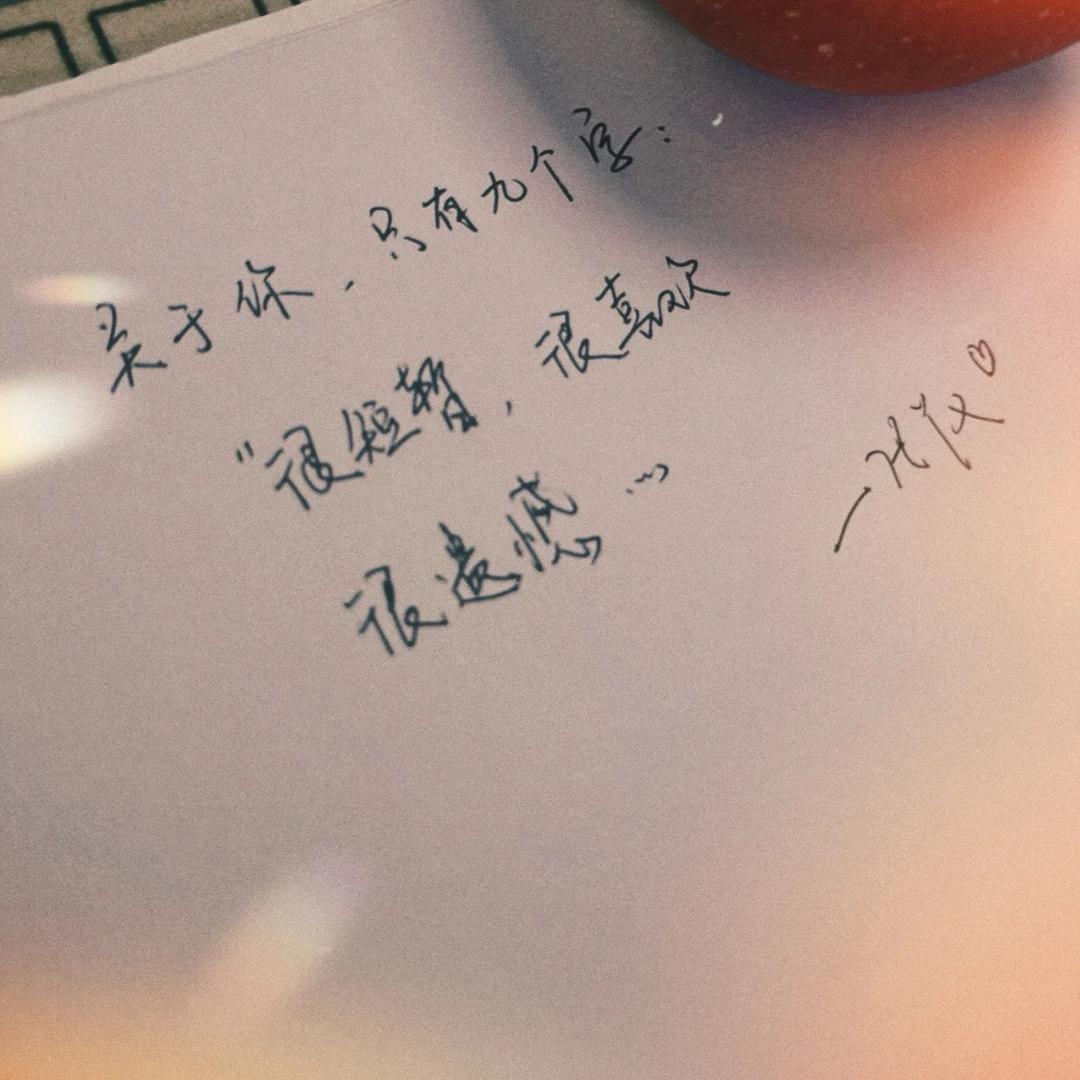 关于你，只有九个字：
“很短暂，很喜欢
很遗憾…